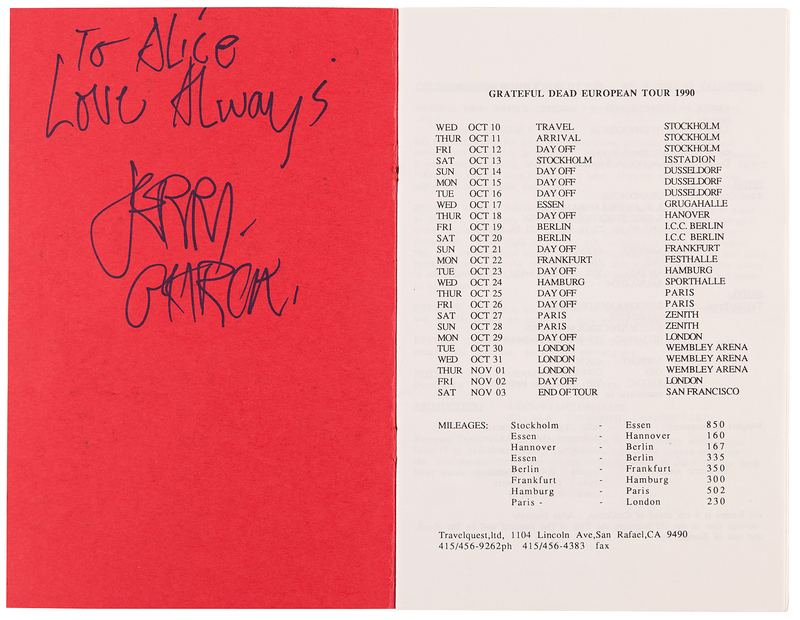 To Alice
Love Always
Jerry
Garcia.
GRATEFUL DEAD EUROPEAN TOUR 1990
WED OCT 10 TRAVEL STOCKHOLM
THUR OCT 11 ARRIVAL STOCKHOLM
FRI OCT 12 DAY OFF STOCKHOLM
SAT OCT 13 STOCKHOLM ISSTADION
SUN OCT 14 DAY OFF DUSSELDORF
MON OCT 15 DAY OFF DUSSELDORF
TUE OCT 16 DAY OFF DUSSELDORF
WED OCT 17 ESSEN GRUGAHALLE
THUR OCT 18 DAY OFF HANOVER
FRI OCT 19 BERLIN I.C.C. BERLIN
SAT OCT 20 BERLIN I.C.C BERLIN
SUN OCT 21 DAY OFF FRANKFURT
MON OCT 22 FRANKFURT FESTHALLE
TUE OCT 23 DAY OFF HAMBURG
WED OCT 24 HAMBURG SPORTHALLE
THUR OCT 25 DAY OFF PARIS
FRI OCT 26 DAY OFF PARIS
SAT OCT 27 PARIS ZENITH
SUN OCT 28 PARIS ZENITH
MON OCT 29 DAY OFF LONDON
TUE OCT 30 LONDON WEMBLEY ARENA
WED OCT 31 LONDON WEMBLEY ARENA
THUR NOV 01 LONDON WEMBLEY ARENA
FRI NOV 02 DAY OFF LONDON
SAT NOV 03 END OF TOUR SAN FRANCISCO
MILEAGES: Stockholm - Essen 850
Essen - Hannover 160
Hannover - Berlin 167
Essen - Berlin 335
Berlin - Frankfurt 350
Frankfurt - Hamburg 300
Hamburg - Paris 502
Paris - - London 230
Travelquest,ltd, 1104 Lincoln Ave,San Rafael,CA 9490
415/456-9262ph 415/456-4383 fax